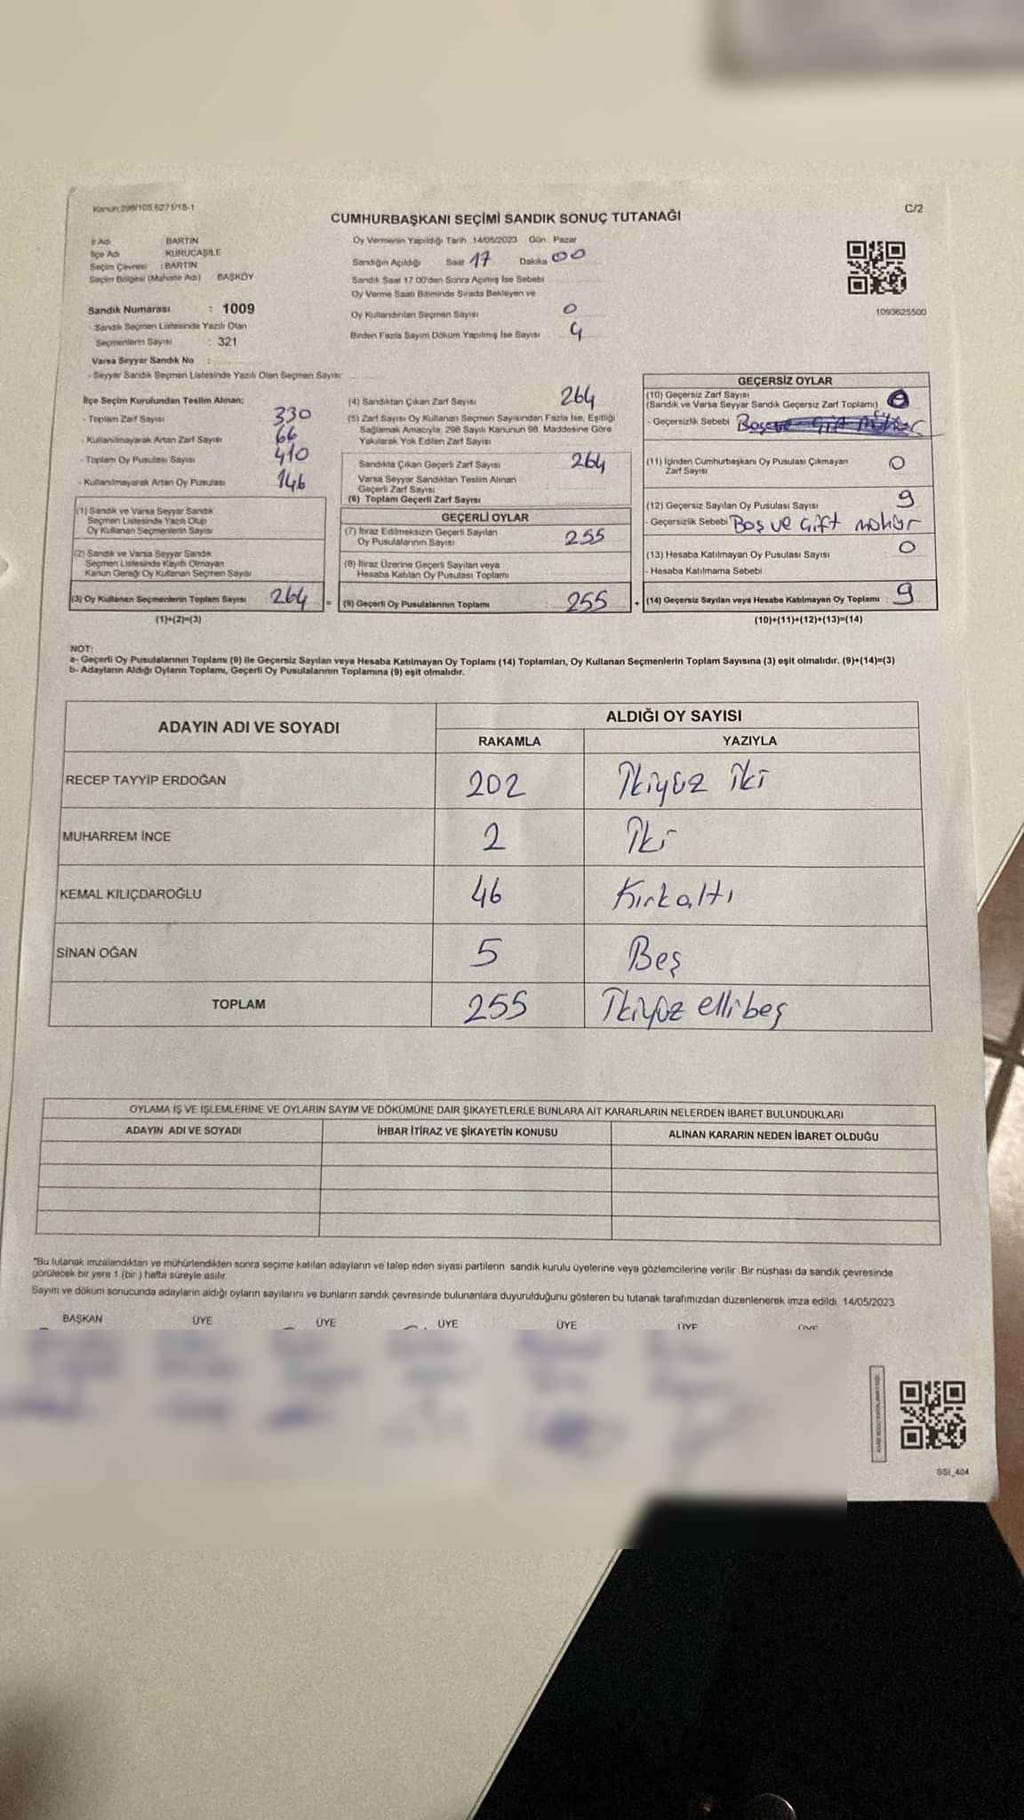 Kanun 298/105,6271/18-1
C/2
CUMHURBAŞKANI SEÇİMİ SANDIK SONUÇ TUTANAĞI
İl Adı : BARTIN
İlçe Adı : KURUCAŞİLE
Seçim Çevresi : BARTIN
Seçim Bölgesi (Mahalle Adı) BAŞKÖY
Sandık Numarası : 1009
- Sandık Seçmen Listesinde Yazılı Olan
Seçmenlerin Sayısı : 321
Varsa Seyyar Sandık No :
- Seyyar Sandık Seçmen Listesinde Yazılı Olan Seçmen Sayısı:
Oy Vermenin Yapıldığı Tarih :14/05/2023 Gün : Pazar
Sandığın Açıldığı Saat 17 Dakika 00
Sandık Saat 17.00'den Sonra Açılmış İse Sebebi
Oy Verme Saati Bitiminde Sırada Bekleyen ve
Oy Kullandırılan Seçmen Sayısı 0
Birden Fazla Sayım Döküm Yapılmış İse Sayısı 4
1093625500
İlçe Seçim Kurulundan Teslim Alınan;
- Toplam Zarf Sayısı 330
- Kullanılmayarak Artan Zarf Sayısı 66
- Toplam Oy Pusulası Sayısı 410
- Kullanılmayarak Artan Oy Pusulası 146
(1) Sandık ve Varsa Seyyar Sandık
Seçmen Listesinde Yazılı Olup
Oy Kullanan Seçmenlerin Sayısı
(2) Sandık ve Varsa Seyyar Sandık
Seçmen Listesinde Kayıtlı Olmayan
Kanun Gereği Oy Kullanan Seçmen Sayısı
(3) Oy Kullanan Seçmenlerin Toplam Sayısı 264 =
(1)+(2)=(3)
(4) Sandıktan Çıkan Zarf Sayısı 264
(5) Zarf Sayısı Oy Kullanan Seçmen Sayısından Fazla İse, Eşitliği
Sağlamak Amacıyla, 298 Sayılı Kanunun 98. Maddesine Göre
Yakılarak Yok Edilen Zarf Sayısı
Sandıkta Çıkan Geçerli Zarf Sayısı 264
Varsa Seyyar Sandıktan Teslim Alınan
Geçerli Zarf Sayısı
(6) Toplam Geçerli Zarf Sayısı
GEÇERLİ OYLAR
(7) İtiraz Edilmeksizin Geçerli Sayılan
Oy Pusulalarının Sayısı 255
(8) İtiraz Üzerine Geçerli Sayılan veya
Hesaba Katılan Oy Pusulası Toplamı
(9) Geçerli Oy Pusulalarının Toplamı : 255 +
GEÇERSİZ OYLAR
(10) Geçersiz Zarf Sayısı
(Sandık ve Varsa Seyyar Sandık Geçersiz Zarf Toplamı) 0
- Geçersizlik Sebebi Boş ve Çift Mühür
(11) İçinden Cumhurbaşkanı Oy Pusulası Çıkmayan
Zarf Sayısı 0
(12) Geçersiz Sayılan Oy Pusulası Sayısı 9
- Geçersizlik Sebebi Boş ve Çift mühür
(13) Hesaba Katılmayan Oy Pusulası Sayısı 0
- Hesaba Katılmama Sebebi
(14) Geçersiz Sayılan veya Hesaba Katılmayan Oy Toplamı : 9
(10)+(11)+(12)+(13)=(14)
NOT:
a- Geçerli Oy Pusulalarının Toplamı (9) ile Geçersiz Sayılan veya Hesaba Katılmayan Oy Toplamı (14) Toplamları, Oy Kullanan Seçmenlerin Toplam Sayısına (3) eşit olmalıdır. (9)+(14)=(3)
b- Adayların Aldığı Oyların Toplamı, Geçerli Oy Pusulalarının Toplamına (9) eşit olmalıdır.
ADAYIN ADI VE SOYADI
ALDIĞI OY SAYISI
RAKAMLA YAZIYLA
RECEP TAYYİP ERDOĞAN 202 İkiyüz iki
MUHARREM İNCE 2 İki
KEMAL KILIÇDAROĞLU 46 Kırkaltı
SİNAN OĞAN 5 Beş
TOPLAM 255 İkiyüz ellibeş
OYLAMA İŞ VE İŞLEMLERİNE VE OYLARIN SAYIM VE DÖKÜMÜNE DAİR ŞİKAYETLERLE BUNLARA AİT KARARLARIN NELERDEN İBARET BULUNDUKLARI
ADAYIN ADI VE SOYADI İHBAR İTİRAZ VE ŞİKAYETİN KONUSU ALINAN KARARIN NEDEN İBARET OLDUĞU
*Bu tutanak imzalandıktan ve mühürlendikten sonra seçime katılan adayların ve talep eden siyasi partilerin sandık kurulu üyelerine veya gözlemcilerine verilir. Bir nüshası da sandık çevresinde
görülecek bir yere 1 (bir ) hafta süreyle asılır.
Sayım ve döküm sonucunda adayların aldığı oyların sayılarını ve bunların sandık çevresinde bulunanlara duyurulduğunu gösteren bu tutanak tarafımızdan düzenlenerek imza edildi. 14/05/2023
BAŞKAN ÜYE ÜYE ÜYE ÜYE ÜYE ÜYE
SSI_404